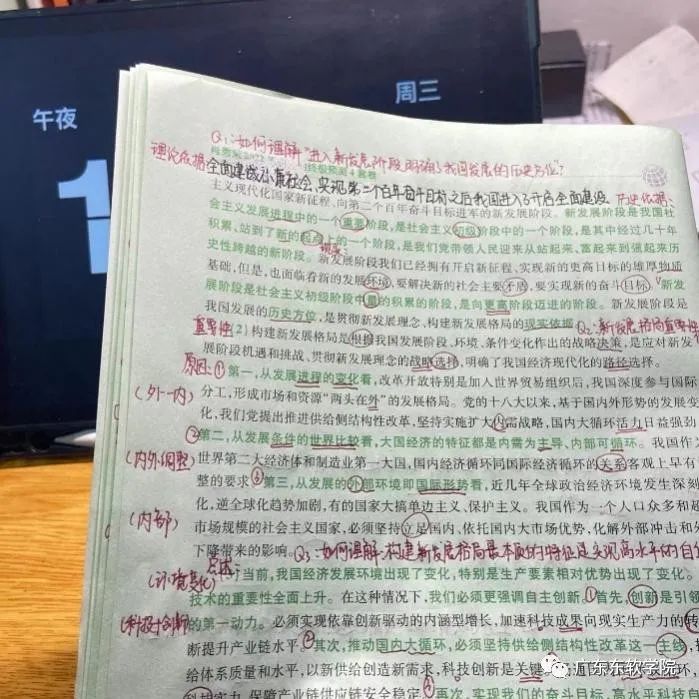 午夜
周三
1
Q1:如何理解"进入新发展阶段明确了我国发展的历史方位"?
理论依据
终极预测4套卷
全面建成小康社会、实现第一个百年奋斗目标之后我国进入了开启全面建设
历史依据:
主义现代化国家新征程,向第二个百年奋斗目标进军的新发展阶段。新发展阶段是我国社
会主义发展进程中的一个重要阶段,是社会主义初级阶段中的一个阶段,是其中经过几十年
积累,站到了新的起点上的一个阶段,是我们党带领人民迎来从站起来、富起来到强起来历
史性跨越的新阶段。新发展阶段我们已经拥有开启新征程、实现新的更高目标的雄厚物质
基础,但是,也面临着新的发展环境,要解决新的社会主要矛盾,要实现新的奋斗目标。新发
展阶段是社会主义初级阶段中量的积累的阶段,是向更高阶段迈进的阶段。新发展阶段是
我国发展的历史方位,是贯彻新发展理念、构建新发展格局的现实依据
Q2:新发展格局重要性
重要性(2)构建新发展格局是根据我国发展阶段、环境、条件变化作出的战略决策,是应对新发
展阶段机遇和挑战、贯彻新发展理念的战略选择,明确了我国经济现代化的路径选择。
原因:①第一,从发展进程的变化看,改革开放特别是加入世界贸易组织后,我国深度参与国际
(外—内)
分工,形成市场和资源"两头在外"的发展格局。党的十八大以来,基于国内外形势的发展变
化,我们党提出推进供给侧结构性改革,坚持实施扩大内需战略,国内大循环活力日益强劲
②第二,从发展条件的世界比较看,大国经济的特征都是内需为主导、内部可循环。我国作为
(内外调整)
世界第二大经济体和制造业第一大国,国内经济循环同国际经济循环的关系客观上早有
整的要求③第三,从发展的外部环境即国际形势看,近几年全球政治经济环境发生深刻
化,逆全球化趋势加剧,有的国家大搞单边主义、保护主义。我国作为一个人口众多和超
(内部)
市场规模的社会主义国家,必须坚持立足国内、依托国内大市场优势,化解外部冲击和外
下降带来的影响。Q3:如何理解构建新发展格局最本质的特征是实现高水平的自
(环境变化)
当前,我国经济发展环境出现了变化,特别是生产要素相对优势出现了变化。
技术的重要性全面上升。在这种情况下,我们必须更强调自主创新。①首先,创新是引领
(科技创新)
的第一动力。必须实现依靠创新驱动的内涵型增长,加速科技成果向现实生产力的转
断提升产业链水平。②其次,推动国内大循环,必须坚持供给侧结构性改革这一主线,
给体系质量和水平,以新供给创造新需求,科技创新是关键。
保障产业链供应链安全稳定。④再次,实现我们的奋斗目标,高水平科技
广东东软学院